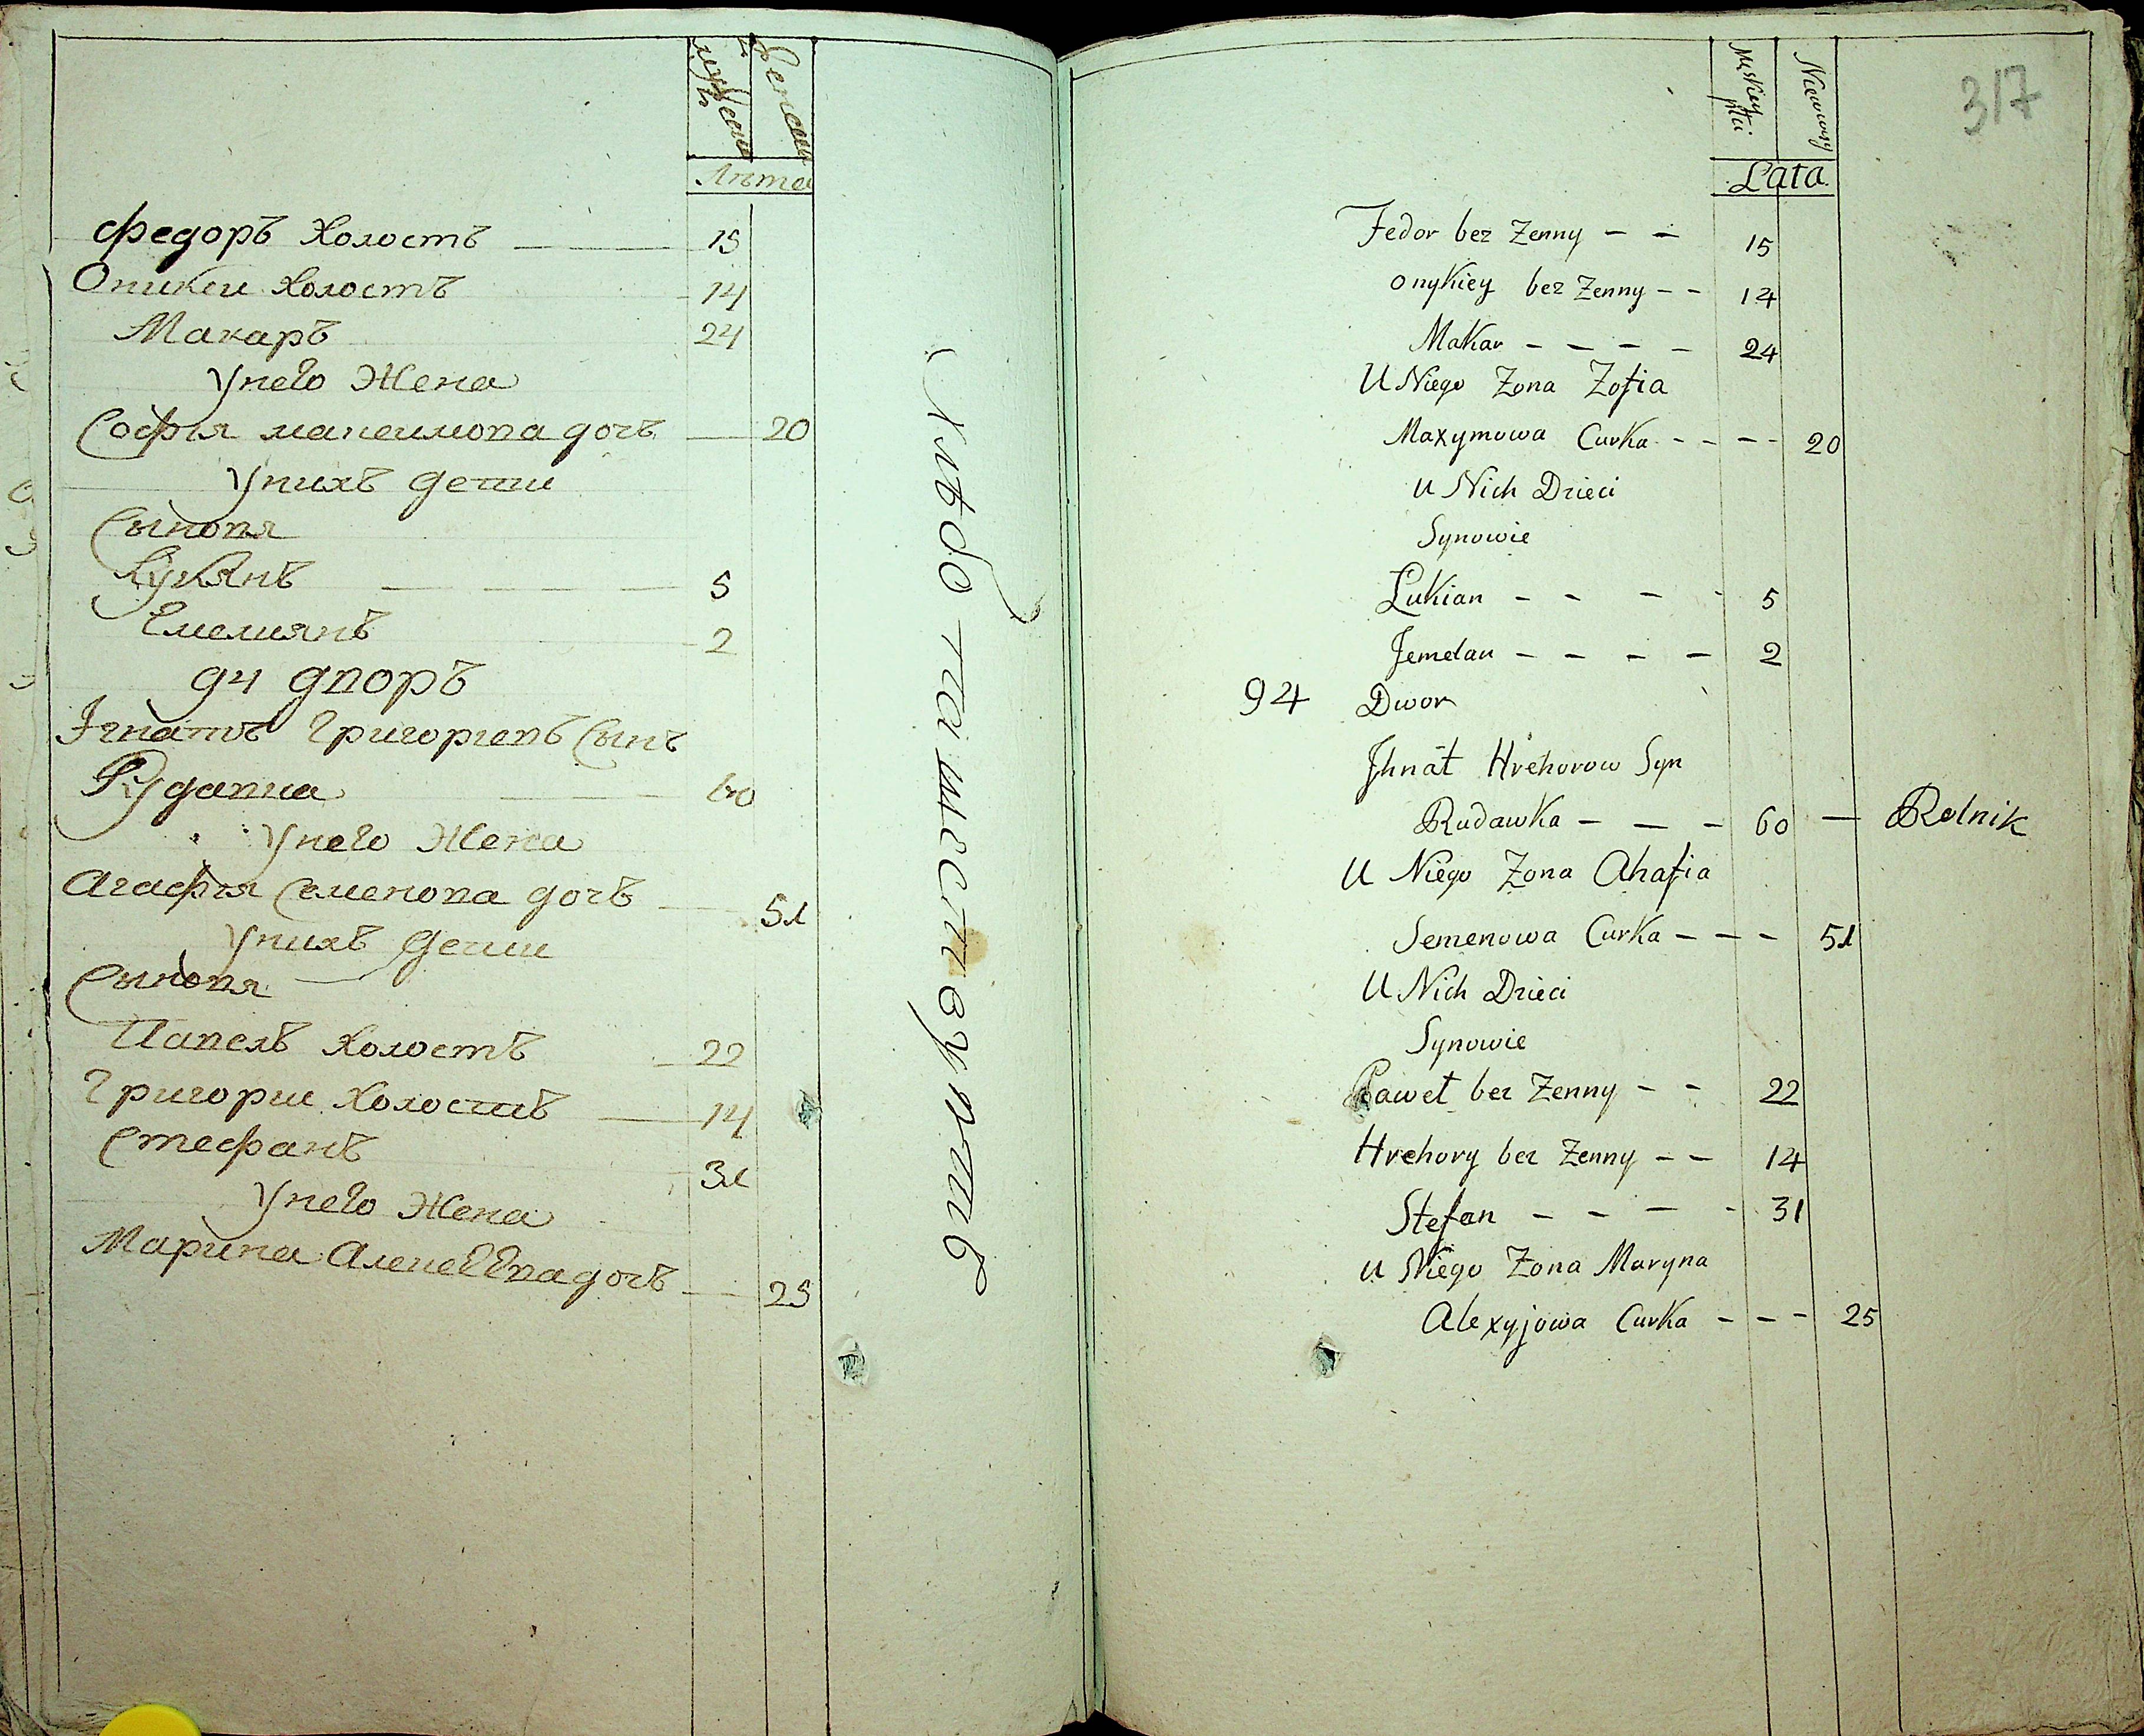 мужеска
женска
лѣта
Федоръ холостъ 15
Оникеи холостъ 14
Макаръ 24
У него жена
Софья максимова дочь 20
У нихъ дети
Сыновя
Лукянъ 5
Емелиянъ 2
94 дворъ
Iгнатъ Григориевъ сынъ
Рудавка 60
У него жена
Агафья Семенова дочь 51
У нихъ дети
Сыновя
Павелъ холостъ 22
Григории холостъ 14
Стефанъ 31
У него жена
Марина Алексеевна дочь 25
Хлебопашествуютъ
317
Męskiey płci
Niewiasty
Lata
Fedor bez Zenny - - 15
onykiey bez Zenny - - 14
Makar - - - - 24
U Niego Zona Zofia
Maxymowa Curka - - - - 20
U Nich Dzieci
Synowie
Lukian - - - - 5
Jemelan - - - - 2
94 Dwor
Jhnat Hrehorow Syn
Rudawka - - - 60 — Rolnik
U Niego Zona Ahafia
Semenowa Curka - - - 51
U Nich Dzieci
Synowie
Paweł bez Zenny - - 22
Hrehory bez Zenny - - 14
Stefan - - - - 31
U Niego Zona Maryna
Alexyjowa Curka - - - 25